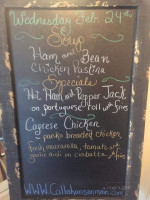 Wednesday Feb. 24th
Soup
Ham and Bean
Chicken Pastina
Specials
Hot Ham and Pepper Jack
on portuguese Roll with fries
Caprese Chicken
panko breaded chicken
fresh mozzarella, tomato with
garlic aioli on ciabatta fries